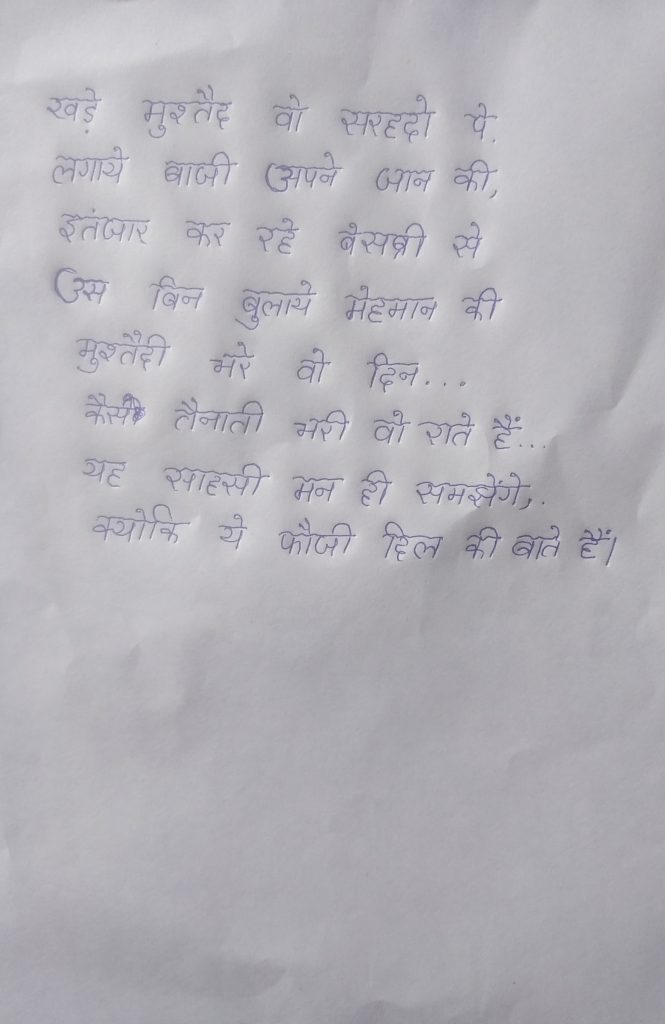 खड़े मुश्तैद वो सरहदो पे.
लगाये बाजी अपने जान की,
इतंजार कर रहे बेसब्री से
उस बिन बुलाये मेहमान की
मुश्तैदी भरे वो दिन...
कैसी तैनाती भरी वो राते हैं...
यह साहसी मन ही समझेंगे,.
क्योकि ये फौजी दिल की बाते हैं।